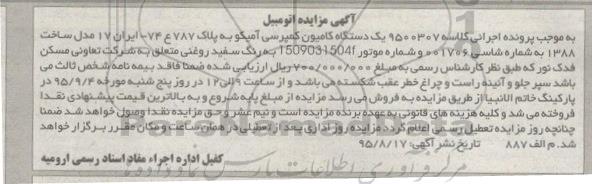 آگهی مزایده اتومبیل
به موجب پرونده اجرائی کلاسه ۹۵۰۰۳۰۷ یک دستگاه کامیون کمپرسی آمیکو به پلاک ۷۸۷ ع ۷۴- ایران ۱۷ مدل ساخت
۱۳۸۸ به شماره شاسی ۰۰۱۷۰۶ و شماره موتور 1509031504f به رنگ سفید روغنی متعلق به شرکت تعاونی مسکن
فدک نور که طبق نظر کارشناس رسمی به مبلغ ۷۰۰/۰۰۰/۰۰۰ ریال ارزیابی شده ضمنا فاقد بیمه نامه شخص ثالث می
باشد سپر جلو و آئینه راست و چراغ خطر عقب شکسته می باشد و از ساعت ۹ الی ۱۲ در روز پنج شنبه مورخه ۹۵/۹/۴ در
پارکینگ خاتم الانبیا از طریق مزایده به فروش می رسد مزایده از مبلغ پایه شروع و به بالاترین قیمت پیشنهادی نقدا
فروخته می شد و کلیه هزینه های قانونی به عهده برنده مزایده است و نیم عشر و حق مزایده نقدا وصول خواهد شد ضمنا
چنانچه روز مزایده تعطیل رسمی اعلام گردد مزایده روز اداری بعد از تعطیلی در همان ساعت و مکان مقرر برگزار خواهد
شد. م الف ۸۸۷ تاریخ نشر آگهی: ۹۵/۸/۱۷
کفیل اداره اجراء مفاد اسناد رسمی ارومیه